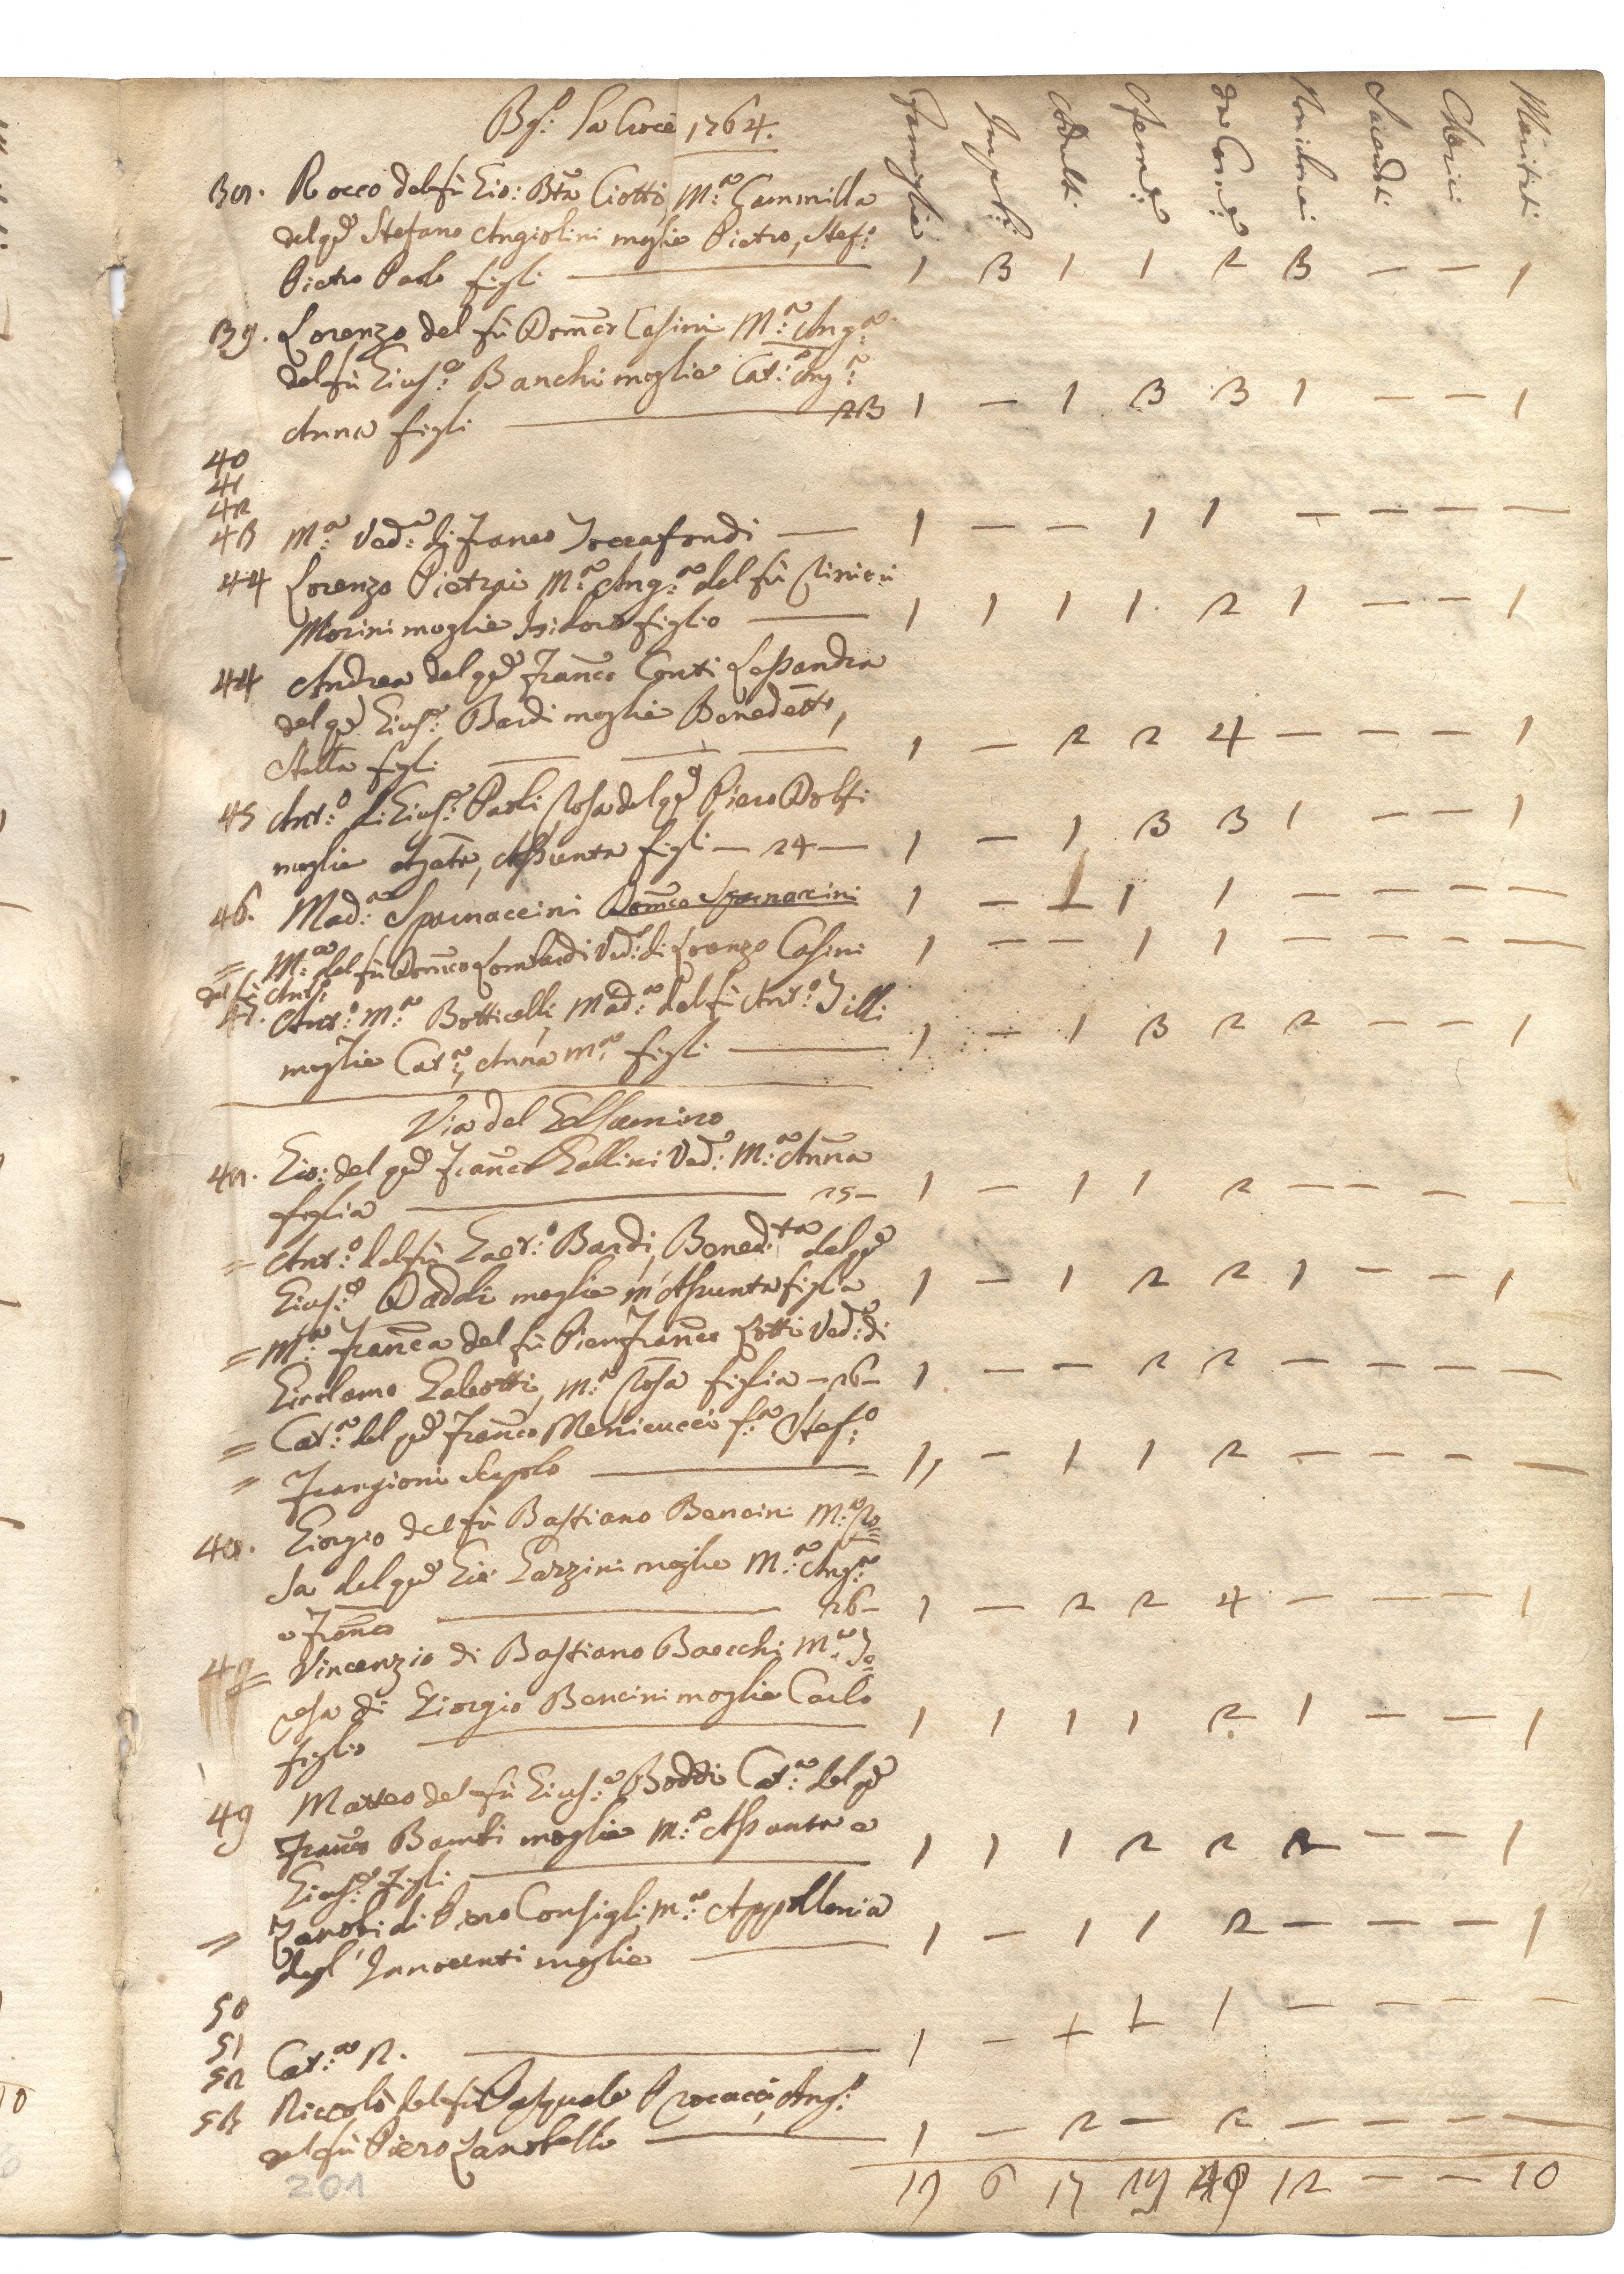 Bg.º La Croce 1764.
Famiglie Impub: Adulti Femⁿᵉ da Comⁿᵉ Non da Sacerdoti Cherici Maritati
38. Rocco del fù Gio: Btã Ciotti, M.ª Cammilla
del qᵐ Stefano Angiolini moglie Pietro, Stef.º
Pietro Paolo figli — 1 3 1 1 2 3 — — 1
39. Lorenzo del fù Domco Casini M.ª Ang.ª
del fù Gius.e Banchi moglie Cat.ª Ang.ª
Anna figli — 23 1 — 1 3 3 1 — — 1
40
41
42
43 M.ª Ved.ª di Franco Toccafondi — 1 — — 1 1 — — — —
44 Lorenzo Pietri M.ª Ang.ª del fù
Morini moglie Isidoro figlio — 1 1 1 1 2 1 — — 1
44 Andrea del qᵐ Franco Conti Lessandra
del qᵐ Gius.e Bardi moglie Benedetto,
Stella figli — — — 1 — 2 2 4 — — — 1
45 Ant.º di Gius.e Paoli Rosa del qᵐ Piero Dolfi
moglie Agata, Assunta figli — 24 — 1 — 1 3 3 1 — — 1
46. Mad.ª Spornaccini Domco Spornacini 1 — 1 1 1 — — — —
= M.ª del fù Domco Lombardi Ved.ª di Lorenzo Casini 1 — — 1 1 — — — —
del fù Ant.º
47. Ant.º M.ª Botticelli, Mad.ª del fù Ant.º Tilli
moglie Cat.ª, Anna M.ª figli — 1 — 1 3 2 2 — — 1
Via del Gelsomino
48. Gio: del qᵐ Franco Gallini Ved.º M.ª Anna
figlia — 25 — 1 — 1 1 2 — — — —
= Ant.º del fù Gaet.º Bardi, Bened.ta del qᵐ
Gius.e Daddi moglie M.ª Assunta figlia 1 — 1 2 2 1 — — 1
= M.ª Franca del fù Pier Franco Lotti Ved.ª di
Girolamo Galeotti, M.ª Rosa figlia — 26 — 1 — — 2 2 — — — —
= Cat.ª del qᵐ Franco Menicucci f.ª Stef.º
= Frangioni Scapolo — 1, — 1 1 2 — — — —
48. Giorgio del fù Bastiano Bencini M.ª Ro=
sa del qᵐ Gio: Gazzini moglie M.ª Ang.ª
e Franco — 26 — 1 — 2 2 4 — — — 1
49= Vincenzio di Bastiano Baecchi M.ª Te=
resa di Giorgio Bencini moglie Carlo
figlio — 1 1 1 1 2 1 — — 1
49 Matteo del fù Gius.e Boddi Cat.ª del qᵐ
Franco Bambi moglie M.ª Assunta e
Gius.e figli — 1 1 1 2 2 2 — — 1
= Zanobi di Piero Consigli, M.ª Appollonia
degl'Innocenti moglie — 1 — 1 1 2 — — — 1
50
51
52 Cat.ª N. — 1 — + + 1 — — — —
53 Niccolò del fù Pasquale Procacci, Ang.º
del fù Piero Zanobello — 1 — 2 — 2 — — — —
19 6 17 29 40 12 — — 10
201